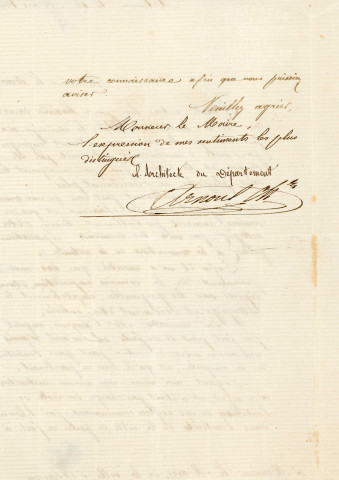 votre connaissance afin que nous puissions
aviser
Veuillez agréer,
Monsieur le Maire,
l'expression de mes sentiments les plus
distingués
L'Architecte du Département
Arnoul